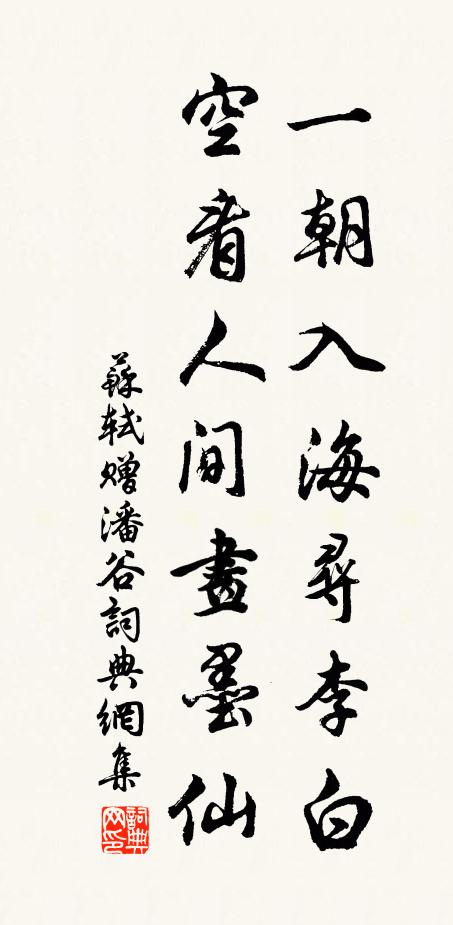 一朝入海尋李白
空看人間畫墨仙
蘇軾贈潘谷詞典網集
詞典網印